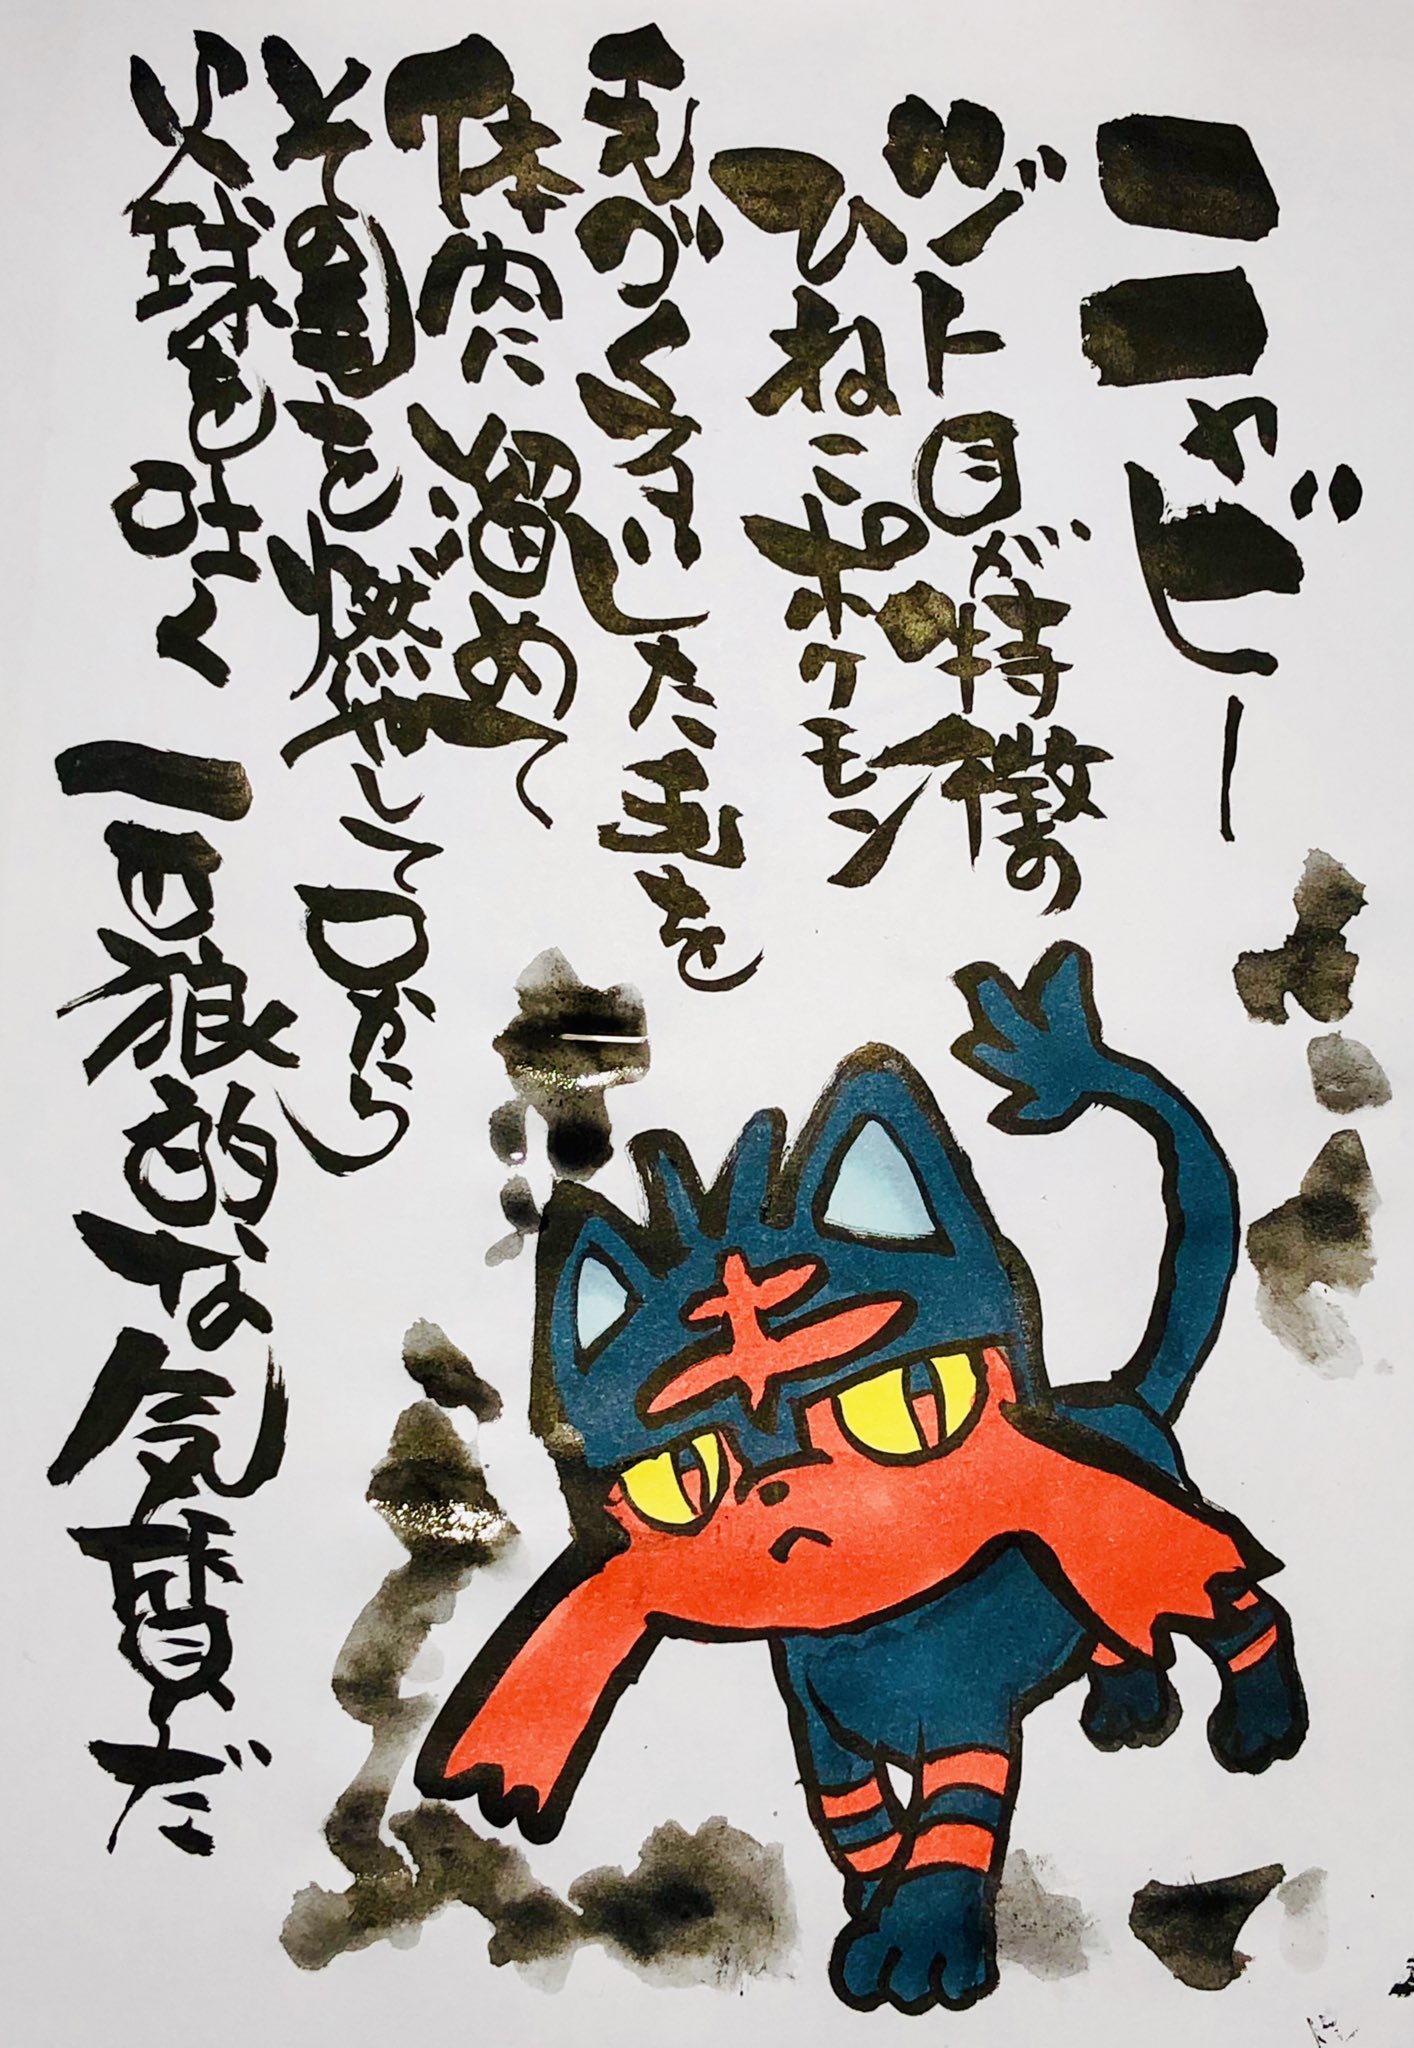 ニャビー
ジト目が特徴の
ひねこポケモン
毛づくろいした玉を
体内に溜めて
その毛を燃やして口から
火球を吐く
一匹狼的な気質だ